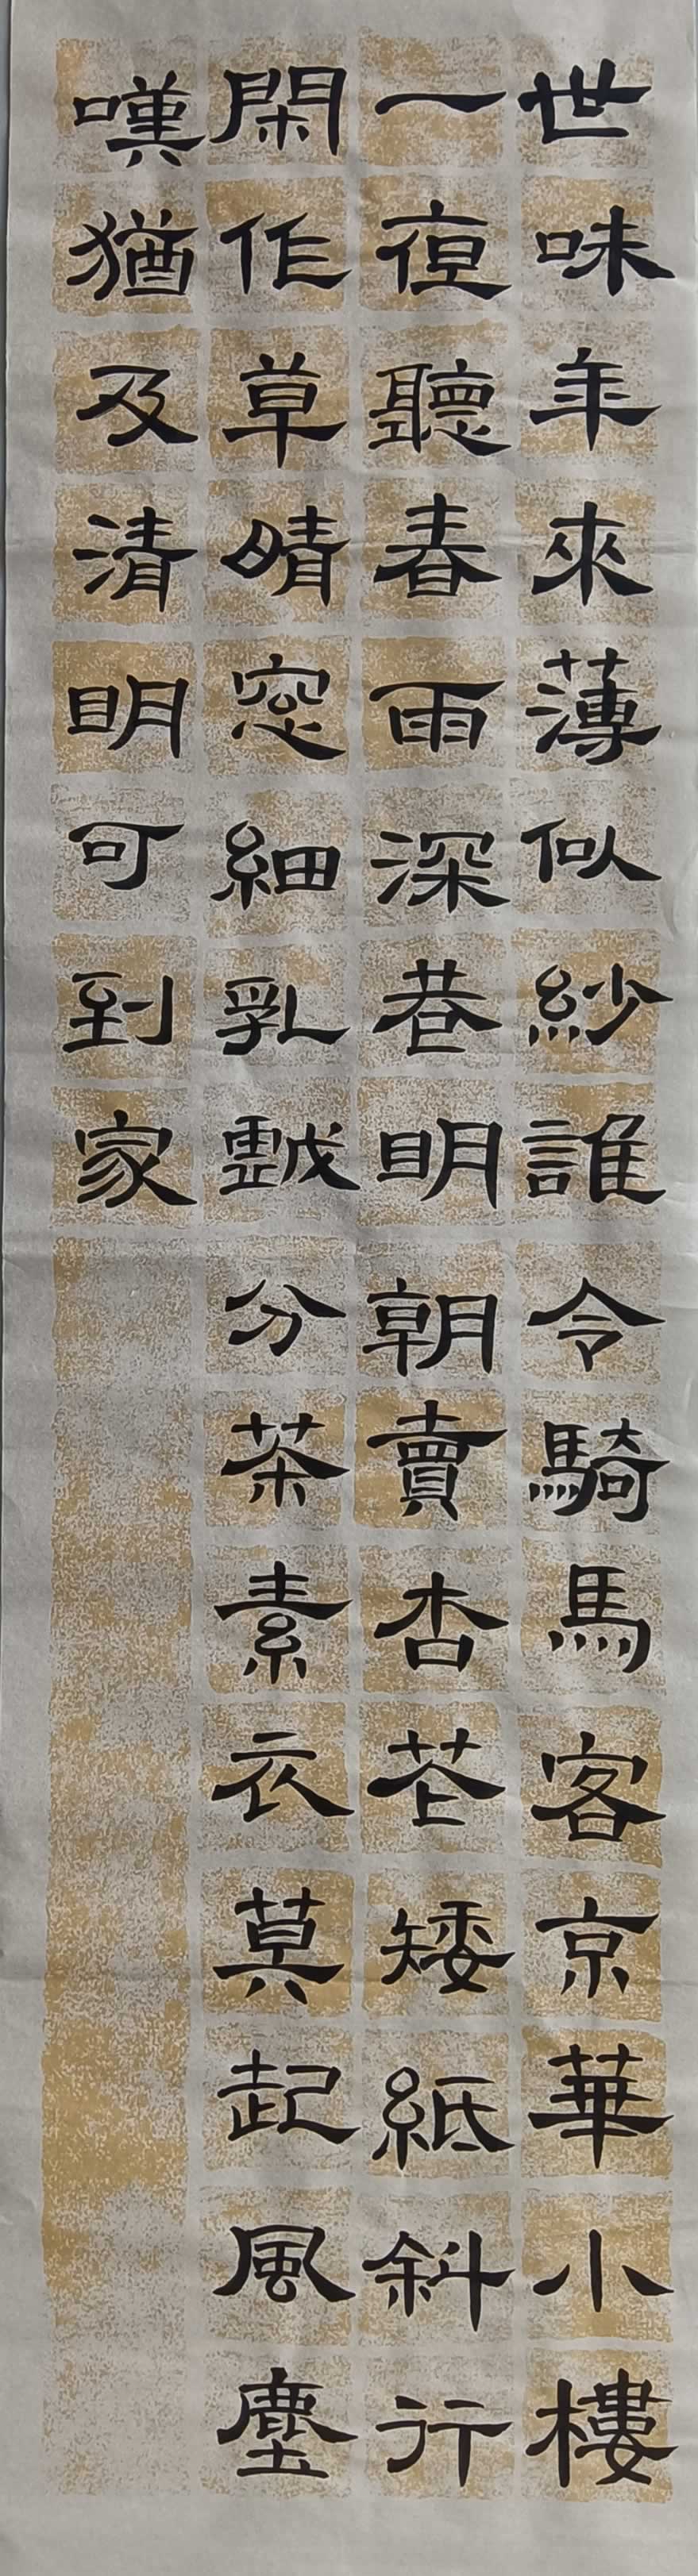 世味年來薄似紗誰令騎馬客京華小樓
一夜聽春雨深巷明朝賣杏花矮紙斜行
閑作草晴窓細乳戲分茶素衣莫起風塵
嘆猶及清明可到家